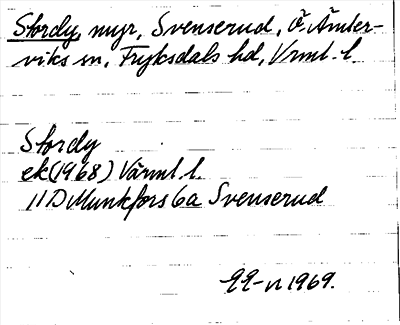 Stordy, myr, Svenserud, Ö. Ämter-
viks sn, Fryksdals hd, Vrml. l.
Stordy
ek (1968) Värml. l.
11D Munkfors 6a Svenserud
1969.